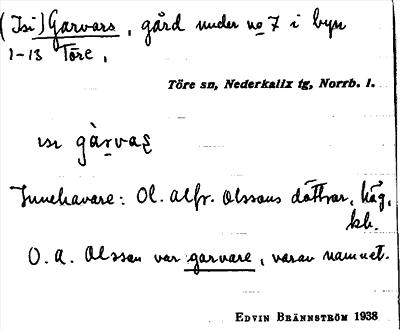 (Isi) Garvars, gård under no 7 i byn
1-13 Töre,
Töre sn, Nederkalix tg, Norrb. l.
isi gàrvaʂ
Innehavare: Ol. Alfr. Olssons döttrar, häg.
kb.
O. A. Olsson var garvare, varav namnet.
EDVIN BRÄNNSTRÖM 1938